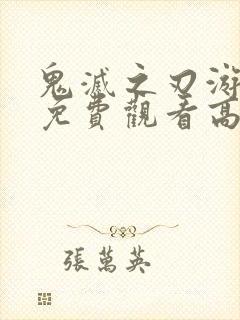 鬼滅之刃游
免費觀看高
張萬英